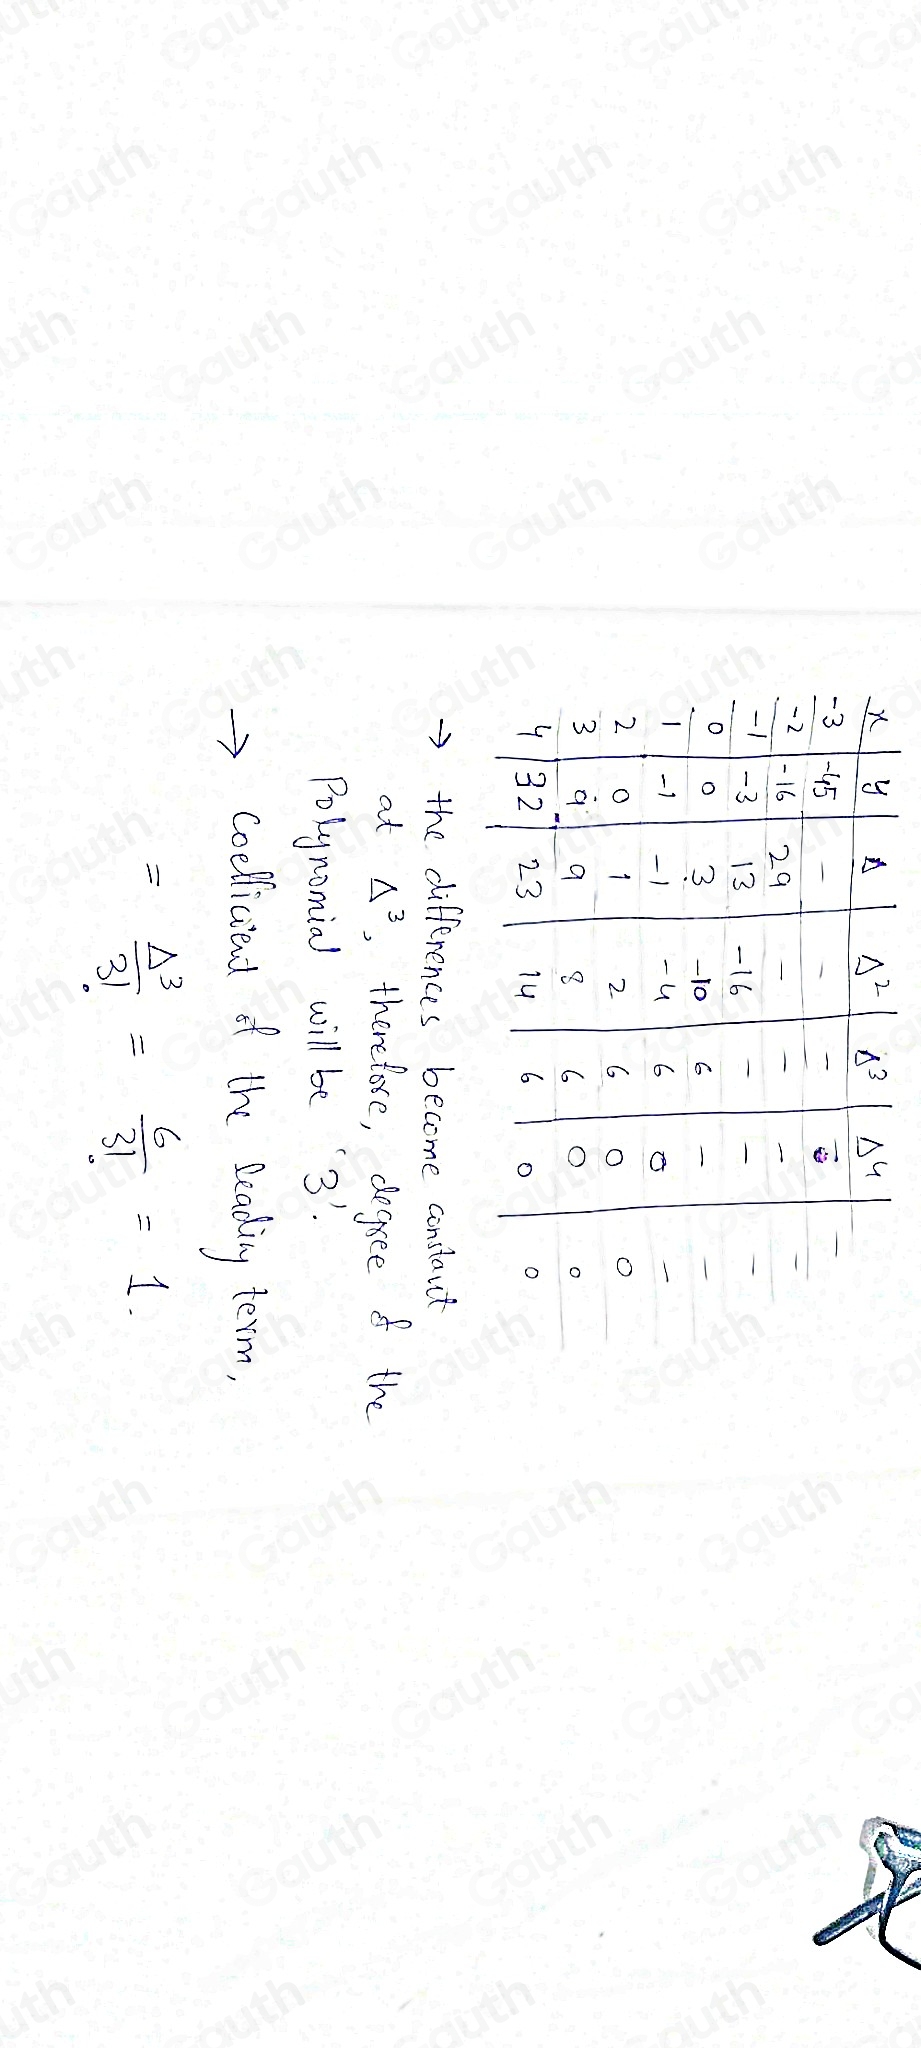 x y Δ Δ² Δ³ Δ4
-3 -45 - - - - -
-2 -16 29 - - - -
-1 -3 13 -16 - - -
0 0 3 -10 6 - -
1 -1 -1 -4 6 0 -
2 0 1 2 6 0 0
3 9 9 8 6 0 0
4 32 23 14 6 0 0
→ the differences become constant
at Δ³, therefore, degree of the
Polynomial will be '3'.
→ Coefficient of the leading term,
= Δ³/3! = 6/3! = 1.